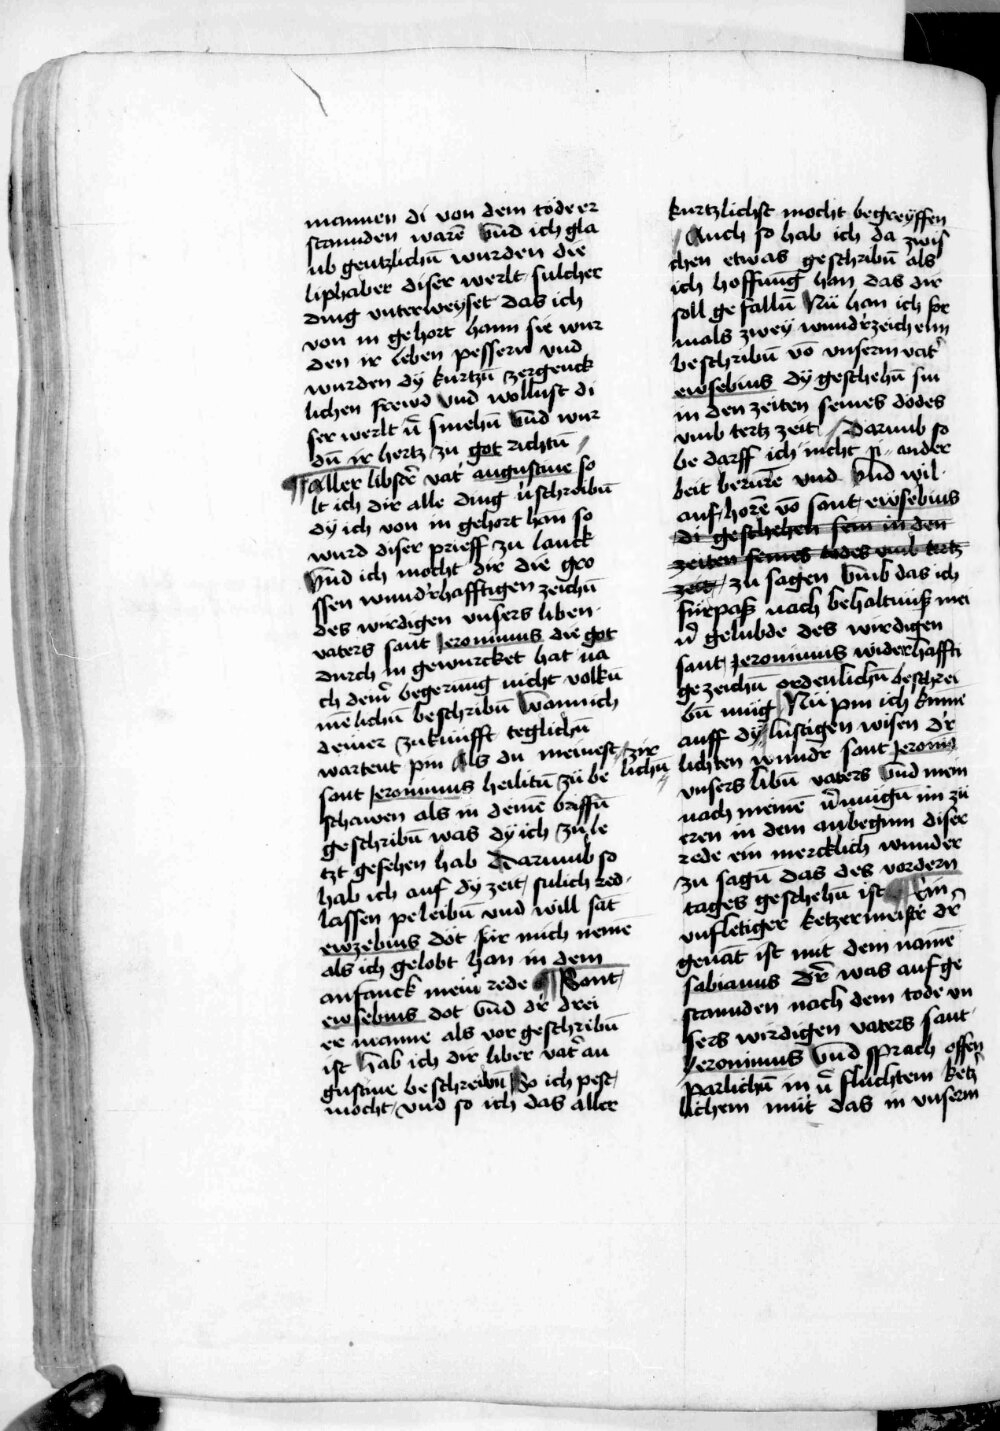 mannen di von dem tode er
stannden warē vnd ich gla
ub gentzlichn̄ wurden die
liphaber diser werlt sulcher
ding vnterweyset das ich
von in gehort hann sie wur
den ir leben pessern vnd
wurden dÿ kurtzn̄ zergenck
lichen frewd vnd wollust di
ser werlt v̄ smehn̄ vnd wur
dn̄ ir hertz zu got richtn̄
Aller libster̄ vat' augustine so
lt ich dir alle ding v̄schreibn̄
dy ich von in gehort han so
wurd diser prieff zu lanck
Vnd ich mocht dir die gro
ssen wund'hafftigen zeichn̄
des wirdigen vnsers liben
vaters sant Jeronimus die got
durch in gewurcket hat na
ch dem̄ begerung nicht volku
me lichn̄ beschribn̄ wann ich
deiner zukunfft teglichn̄
wartent pin Als du meinest zir
lichn̄
sant Jeronimus heilitn̄ zu be
schawen als in deinē briffn̄
geschribn̄ was dy ich zu le
tzt gesehen hab Darumb so
hab ich auf dÿ zeit sulich red
lassen peleibn̄ vnd will sāt
ewzebius dot für mich nemē
als ich gelobt han in dem
anfanck mein̄ rede Sant
ewsebius dot vnd dr̄ drei
er manne als vor geschribn̄
ist hab ich dir liber vat'̄ au
gustine beschreibn̄ So ich pest
mocht vnd so ich das aller
kurtzlichst mocht begreÿffen
Auch so hab ich da zwis
chen etwas geschribn̄ als
ich hoffnūg han das dir
soll gefalln̄ Nū han ich vor
mals zwey wund'zeichenn
beschribn̄ vō vnserm vat'
ewsebius dÿ geschehn̄ sin
in den zeiten seines dodes
vmb tertz zeit Darumb so
be darff ich nicht si ander
beit berurē vnd Vnd wil
auf horē vō sant ewsebius
di geschehen sein in den
zeiten seines todes vmb tertz
zeit zu sagen vmb das ich
fürpaß nach behaltnuß mei
n̄ gelubde des wirdigen
sant Jeronimus widerhaffti
ge zeichn̄ ordenlichn̄ beschrei
bn̄ müg Nū pin ich kume
auff dÿ lustigen wisen dr̄
lichten wund' sant Jeronim
vnsers libn̄ vaters Vnd mein
nach meinē v̄mügn̄ im zü
eren in dem anbeginn diser
rede ein mercklich wunder
zu sagn̄ das des vordern
tages geschehn̄ ist Ein
vnfletiger ketzermeistr̄ dr̄
genāt ist mit dem namē
sabianus Dr̄ was auf ge
stannden nach dem tode vn
sers wirdigen vaters sant
Jeronimus Vnd sprach offen
parlichn̄ in v̄ fluchtem ketz'
lichem müt das in vnserm